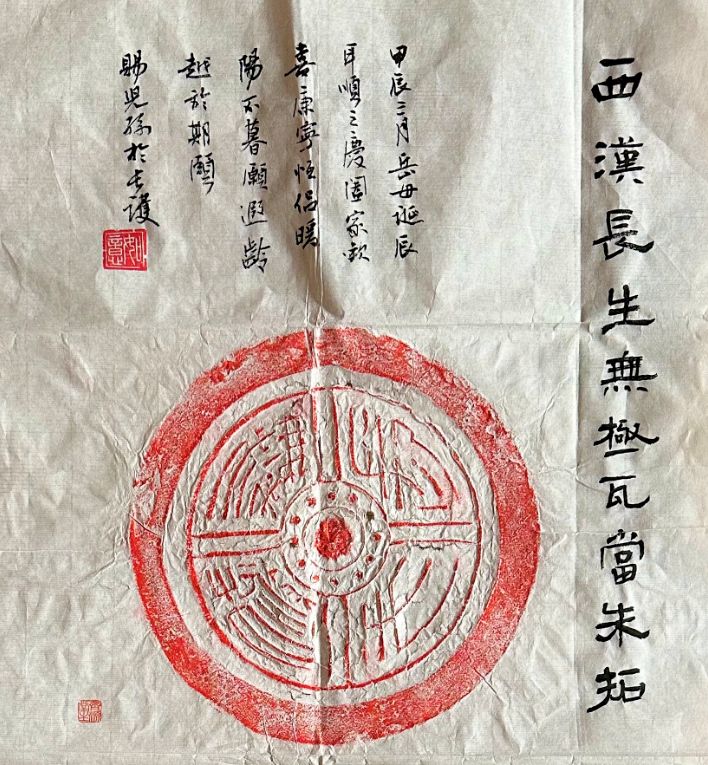 西漢長生無極瓦當朱拓
甲辰二月岳母誕辰
耳順之慶闔家歡
喜康寧恒侣暖
陽不暮願遐齡
越於期頤
賜兒孫於長護
如意
長生無極